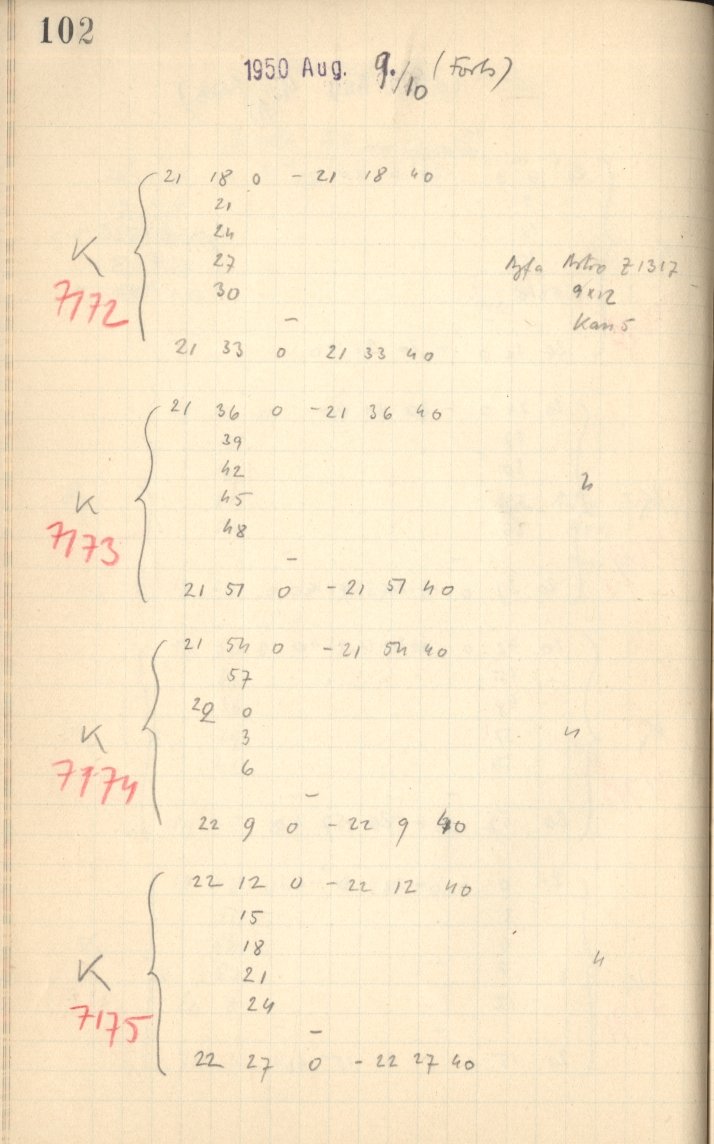 102
1950 Aug. 9./10 (Forts)
21 18 0 - 21 18 40
21
24
K 27
7172 30
Agfa Astro Z1317
9x12
Kan 5
-
21 33 0 21 33 40
21 36 0 - 21 36 40
39
42
K 45 "
7173 48
-
21 51 0 - 21 51 40
21 54 0 - 21 54 40
57
22 0
K 3 "
7174 6
-
22 9 0 - 22 9 40
22 12 0 - 22 12 40
15
18
K 21 "
7175 24
-
22 27 0 - 22 27 40